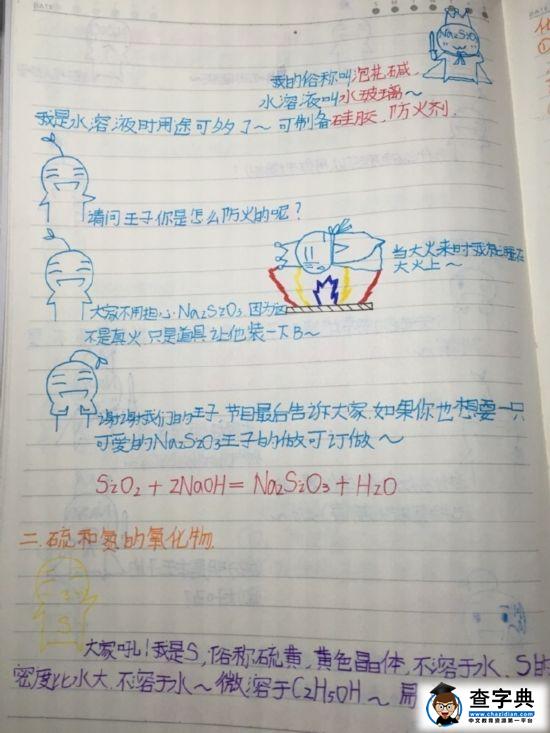 DATE
Na2SiO3
我的俗称叫泡花碱.
水溶液叫水玻璃～
我是水溶液时用途可多了～可制备硅胶,防火剂.
请问王子你是怎么防火的呢?
当大火来时我就睡在
大火上～
大家不用担心Na2SiO3,因为这
不是真火,只是道具让他装一下B～
谢谢我们的王子,节目最后告诉大家,如果你也想要一只
可爱的Na2SiO3王子的做可订做～
SiO2+2NaOH=Na2SiO3+H2O
二.硫和氮的氧化物.
S
大家吼!我是S,俗称硫黄,黄色晶体,不溶于水,S的
密度比水大,不溶于水～微溶于C2H5OH～易
查字典
中文教育资源第一平台
www.chazidian.com